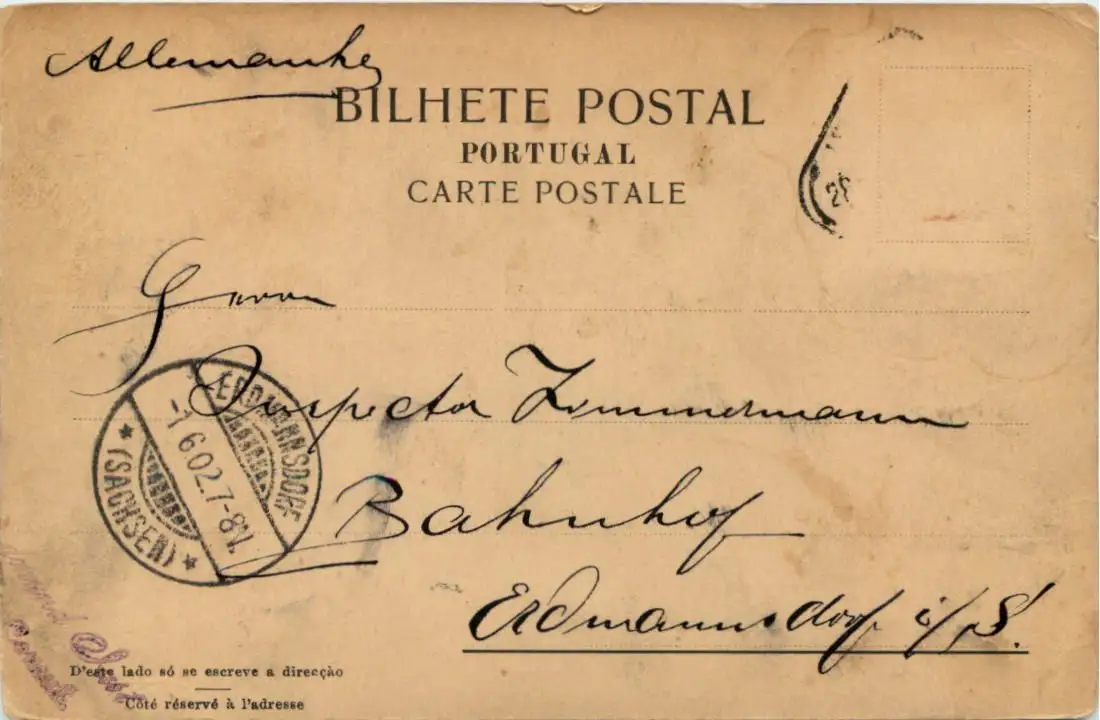 Allemanha
BILHETE POSTAL
PORTUGAL
CARTE POSTALE
Herrn
Inspector Zimmermann
Bahnhof
Erdmannsdorf i/S.
ERDMANNSDORF
-1.6.02.7-8V.
* (SACHSEN) *
D'este lado só se escreve a direcção
Côté réservé à l'adresse